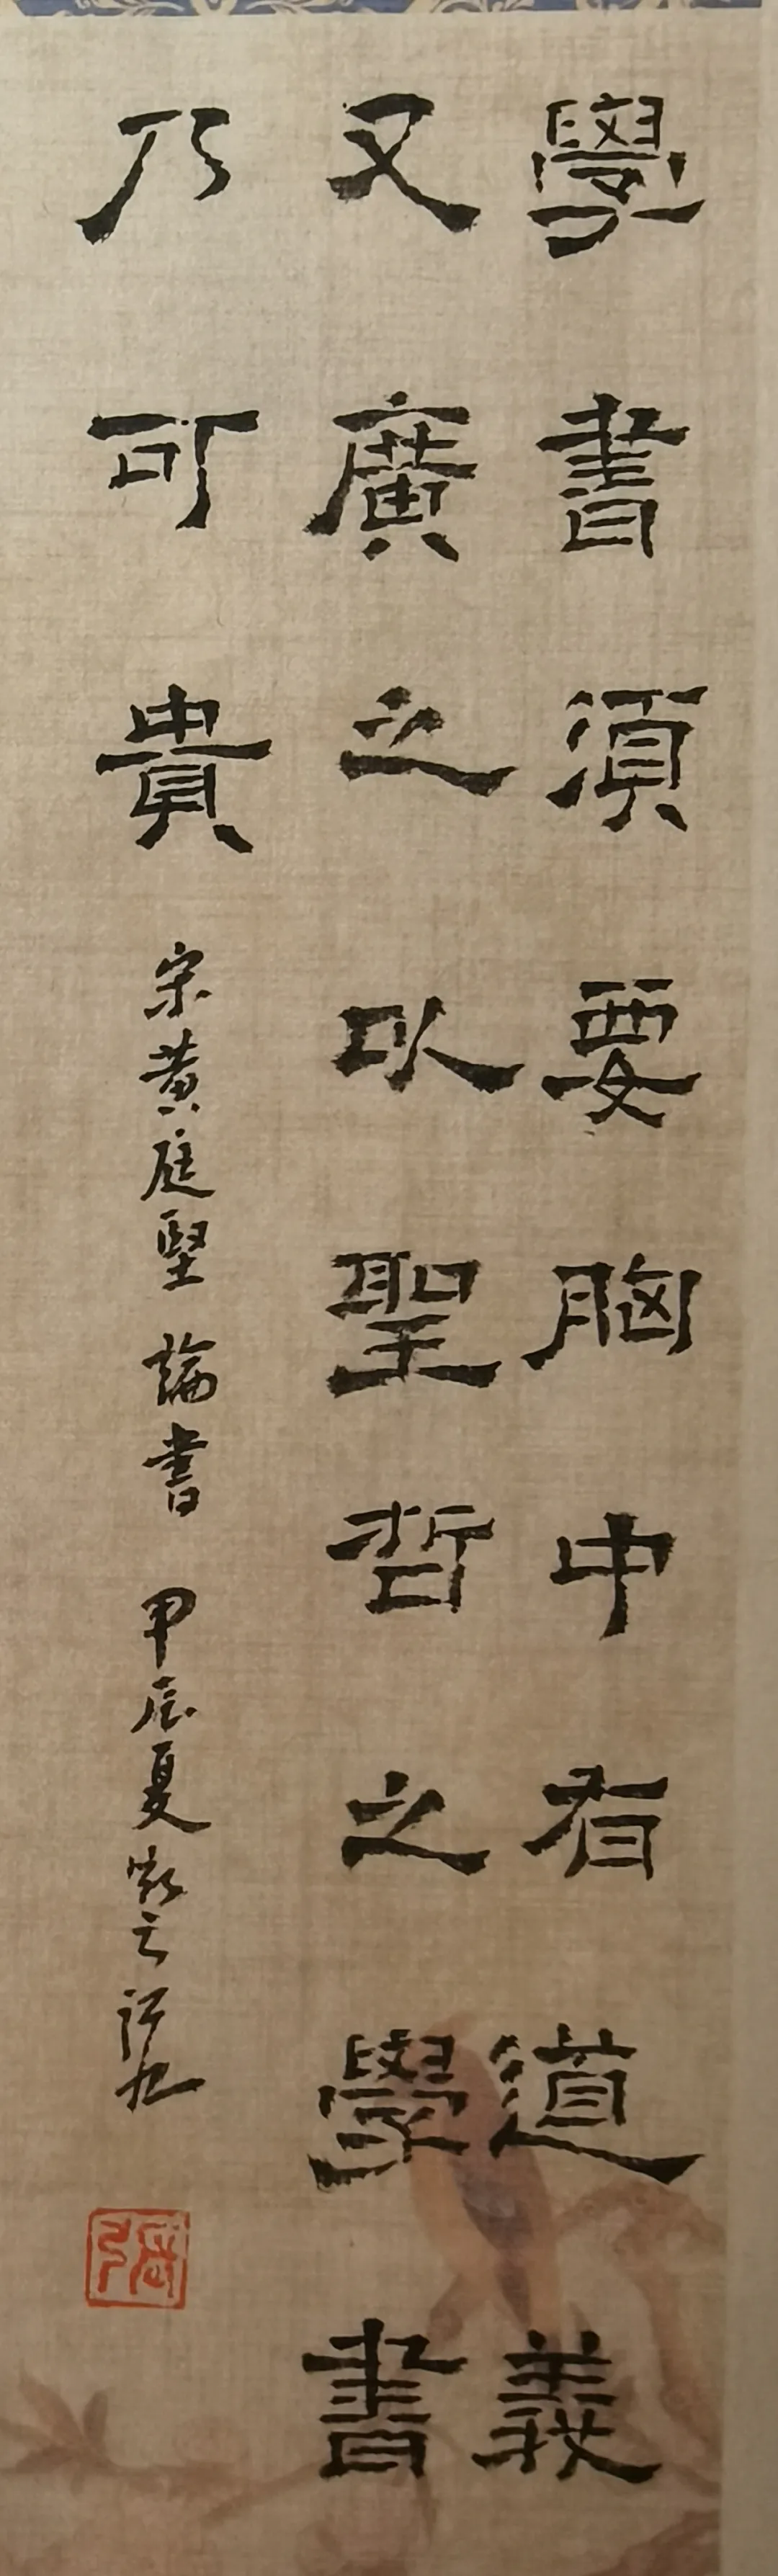 學書須要胸中有道義
又廣之以聖哲之學書
乃可貴
宋黃庭堅 論書 甲辰夏
張